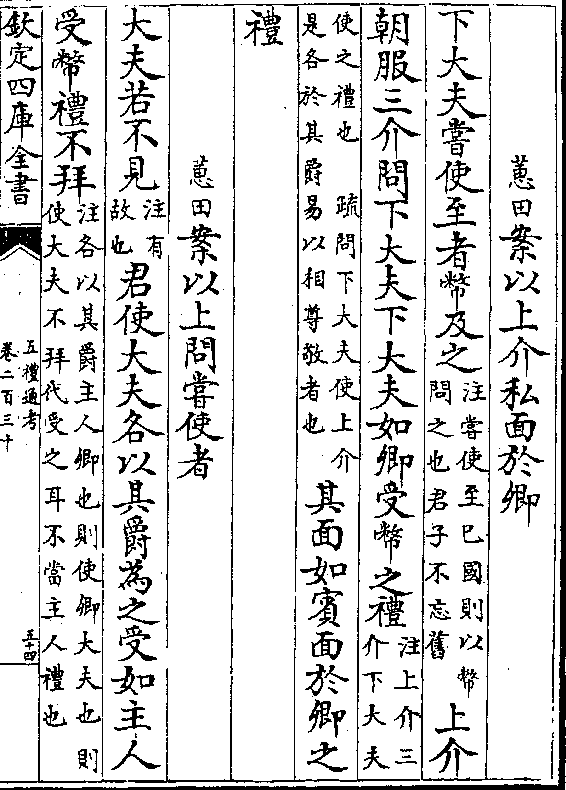 蕙田案以上介私面於卿
下大夫嘗使至者幣及之注嘗使至已國則以幣問之也君子不忘舊上介
朝服三介問下大夫下大夫如卿受幣之禮注上介三介下大夫
使之禮也 疏問下大夫使上介是各於其爵易以相尊敬者也其面如賓面於卿之
禮
蕙田案以上問嘗使者
大夫若不見注有故也君使大夫各以其爵為之受如主人
受幣禮不拜注各以其爵主人卿也則使卿大夫也則使大夫不拜代受之耳不當主人禮也
欽定四庫全書
五禮通考
卷二百三十
五十四